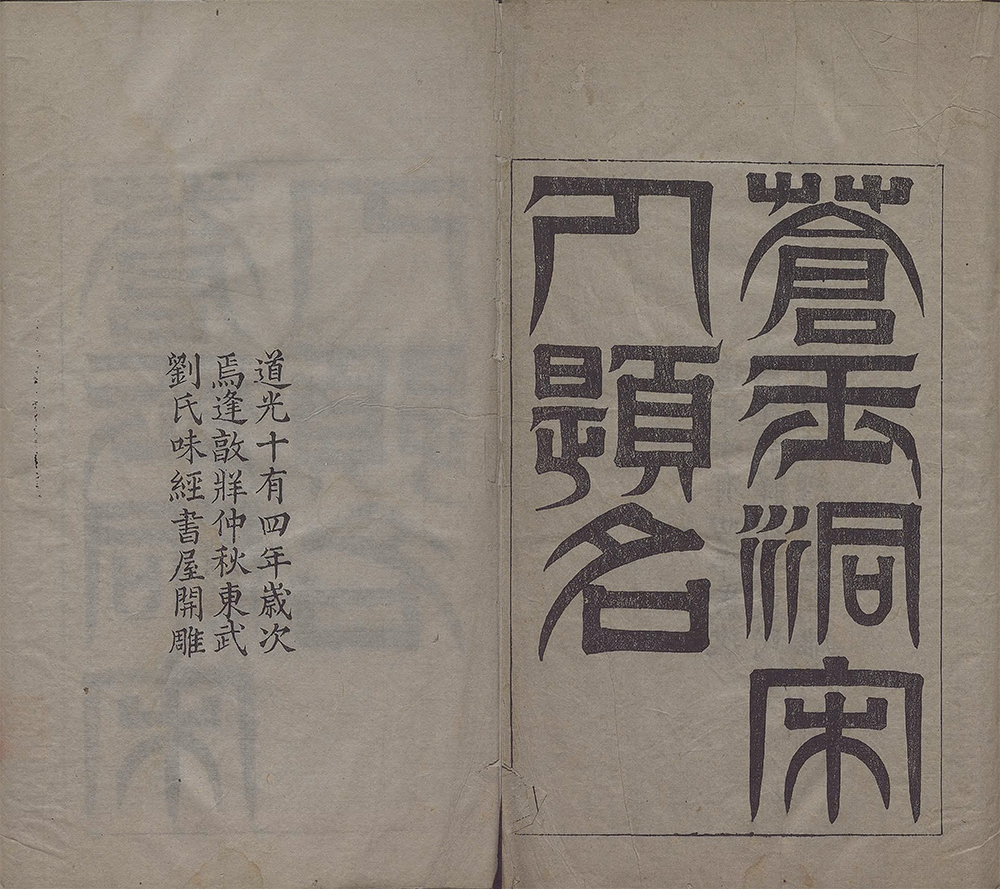 蒼玉洞宋
人題名
道光十有四年歲次
焉逢敦牂仲秋東武
劉氏味經書屋開雕